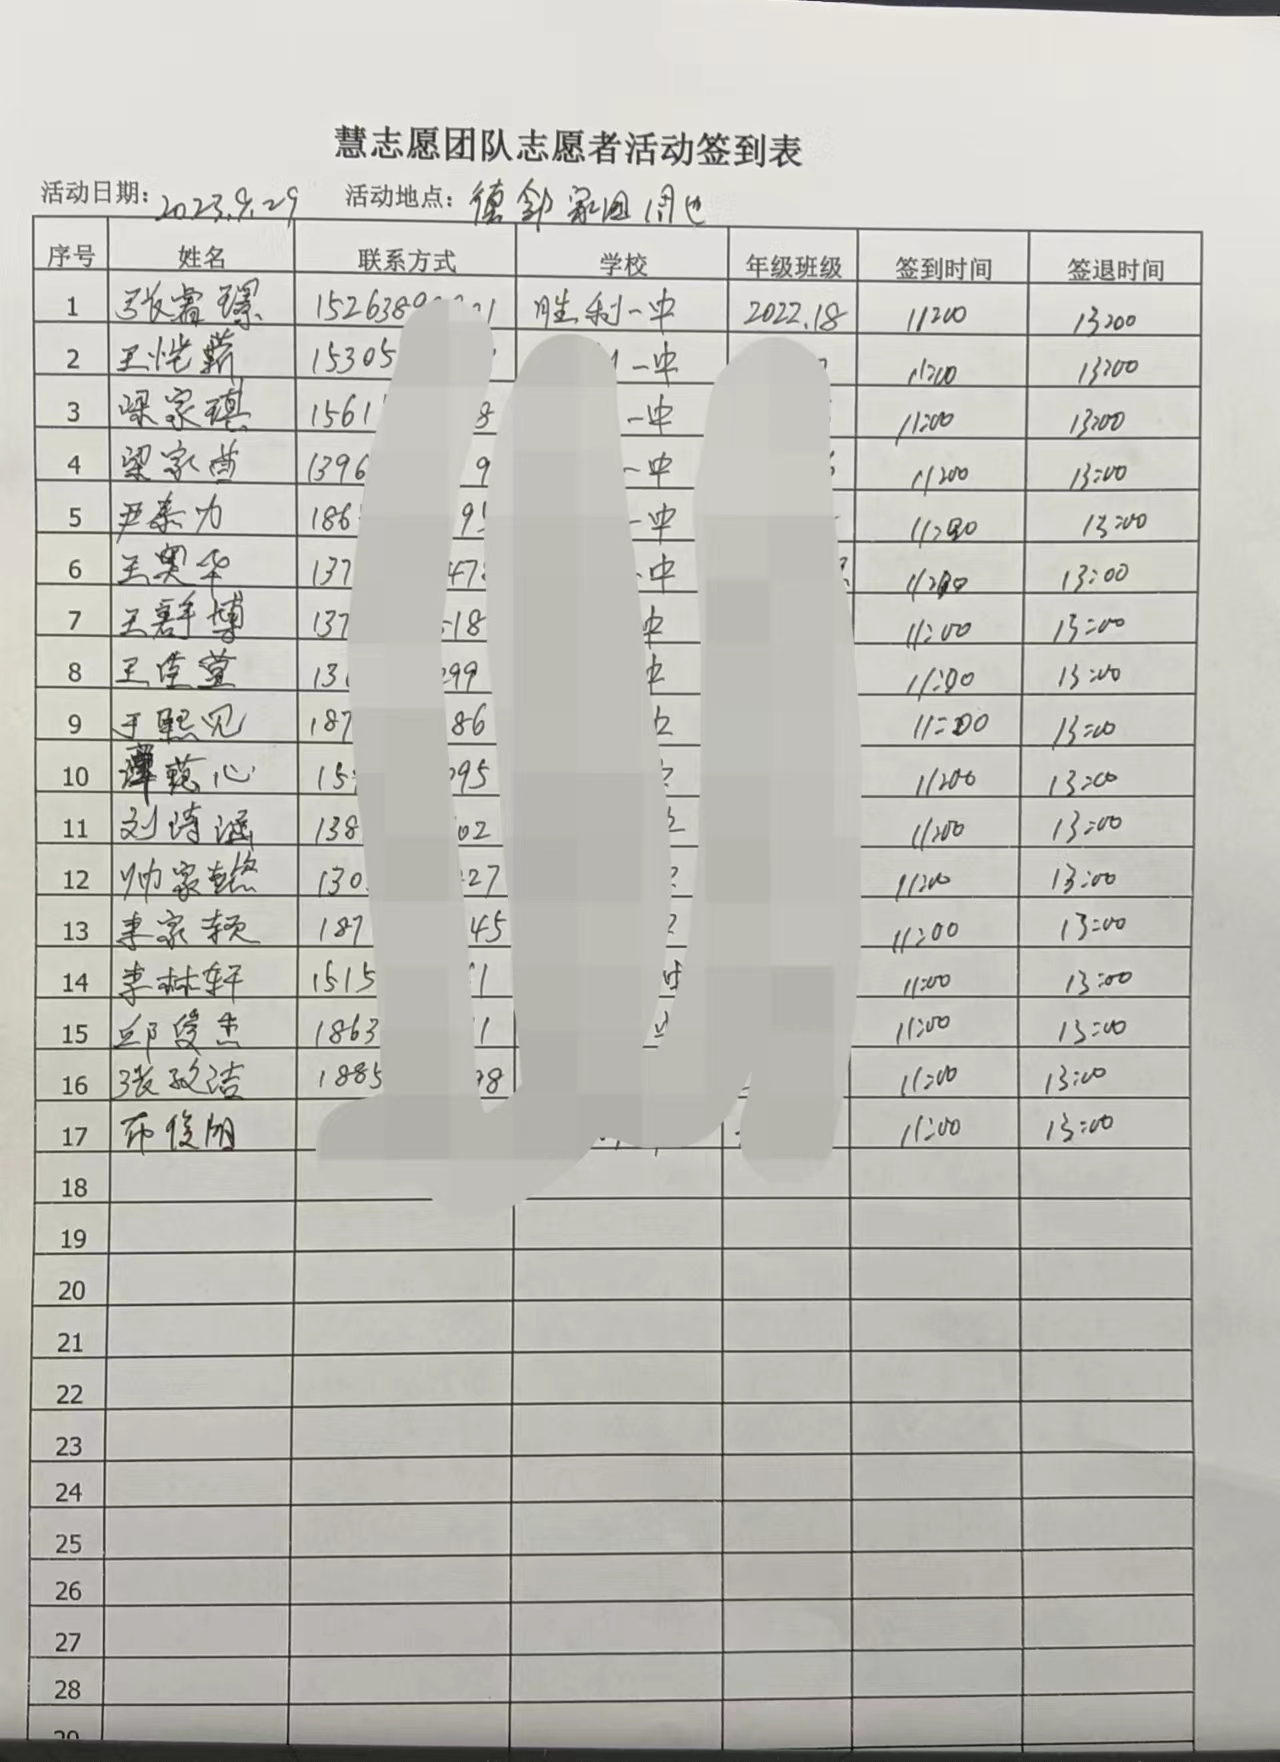 慧志愿团队志愿者活动签到表
活动日期：2023.9.29 活动地点：德邻家园周边
序号 姓名 联系方式 学校 年级班级 签到时间 签退时间
1 张睿璟 胜利一中 2022.18 11:00 13:00
2 王 15305 一中 11:00 13:00
3 梁家琪 1561 8 一中 11:00 13:00
4 梁家茜 1396 9 一中 11:00 13:00
5 尹泰力 186 一中 11:00 13:00
6 王奥华 137 47 中 11:00 13:00
7 王群博 137 18 11:00 13:00
8 王佳萱 99 11:00 13:00
9 于熙见 187 86 11:00 13:00
10 心 15 95 11:00 13:00
11 刘诗涵 138 02 11:00 13:00
12 帅家懿 130 27 11:00 13:00
13 李家颖 187 45 11:00 13:00
14 李林轩 1515 1 11:00 13:00
15 邱俊杰 1863 1 11:00 13:00
16 张政洁 1885 98 11:00 13:00
17 俊朋 11:00 13:00
18
19
20
21
22
23
24
25
26
27
28